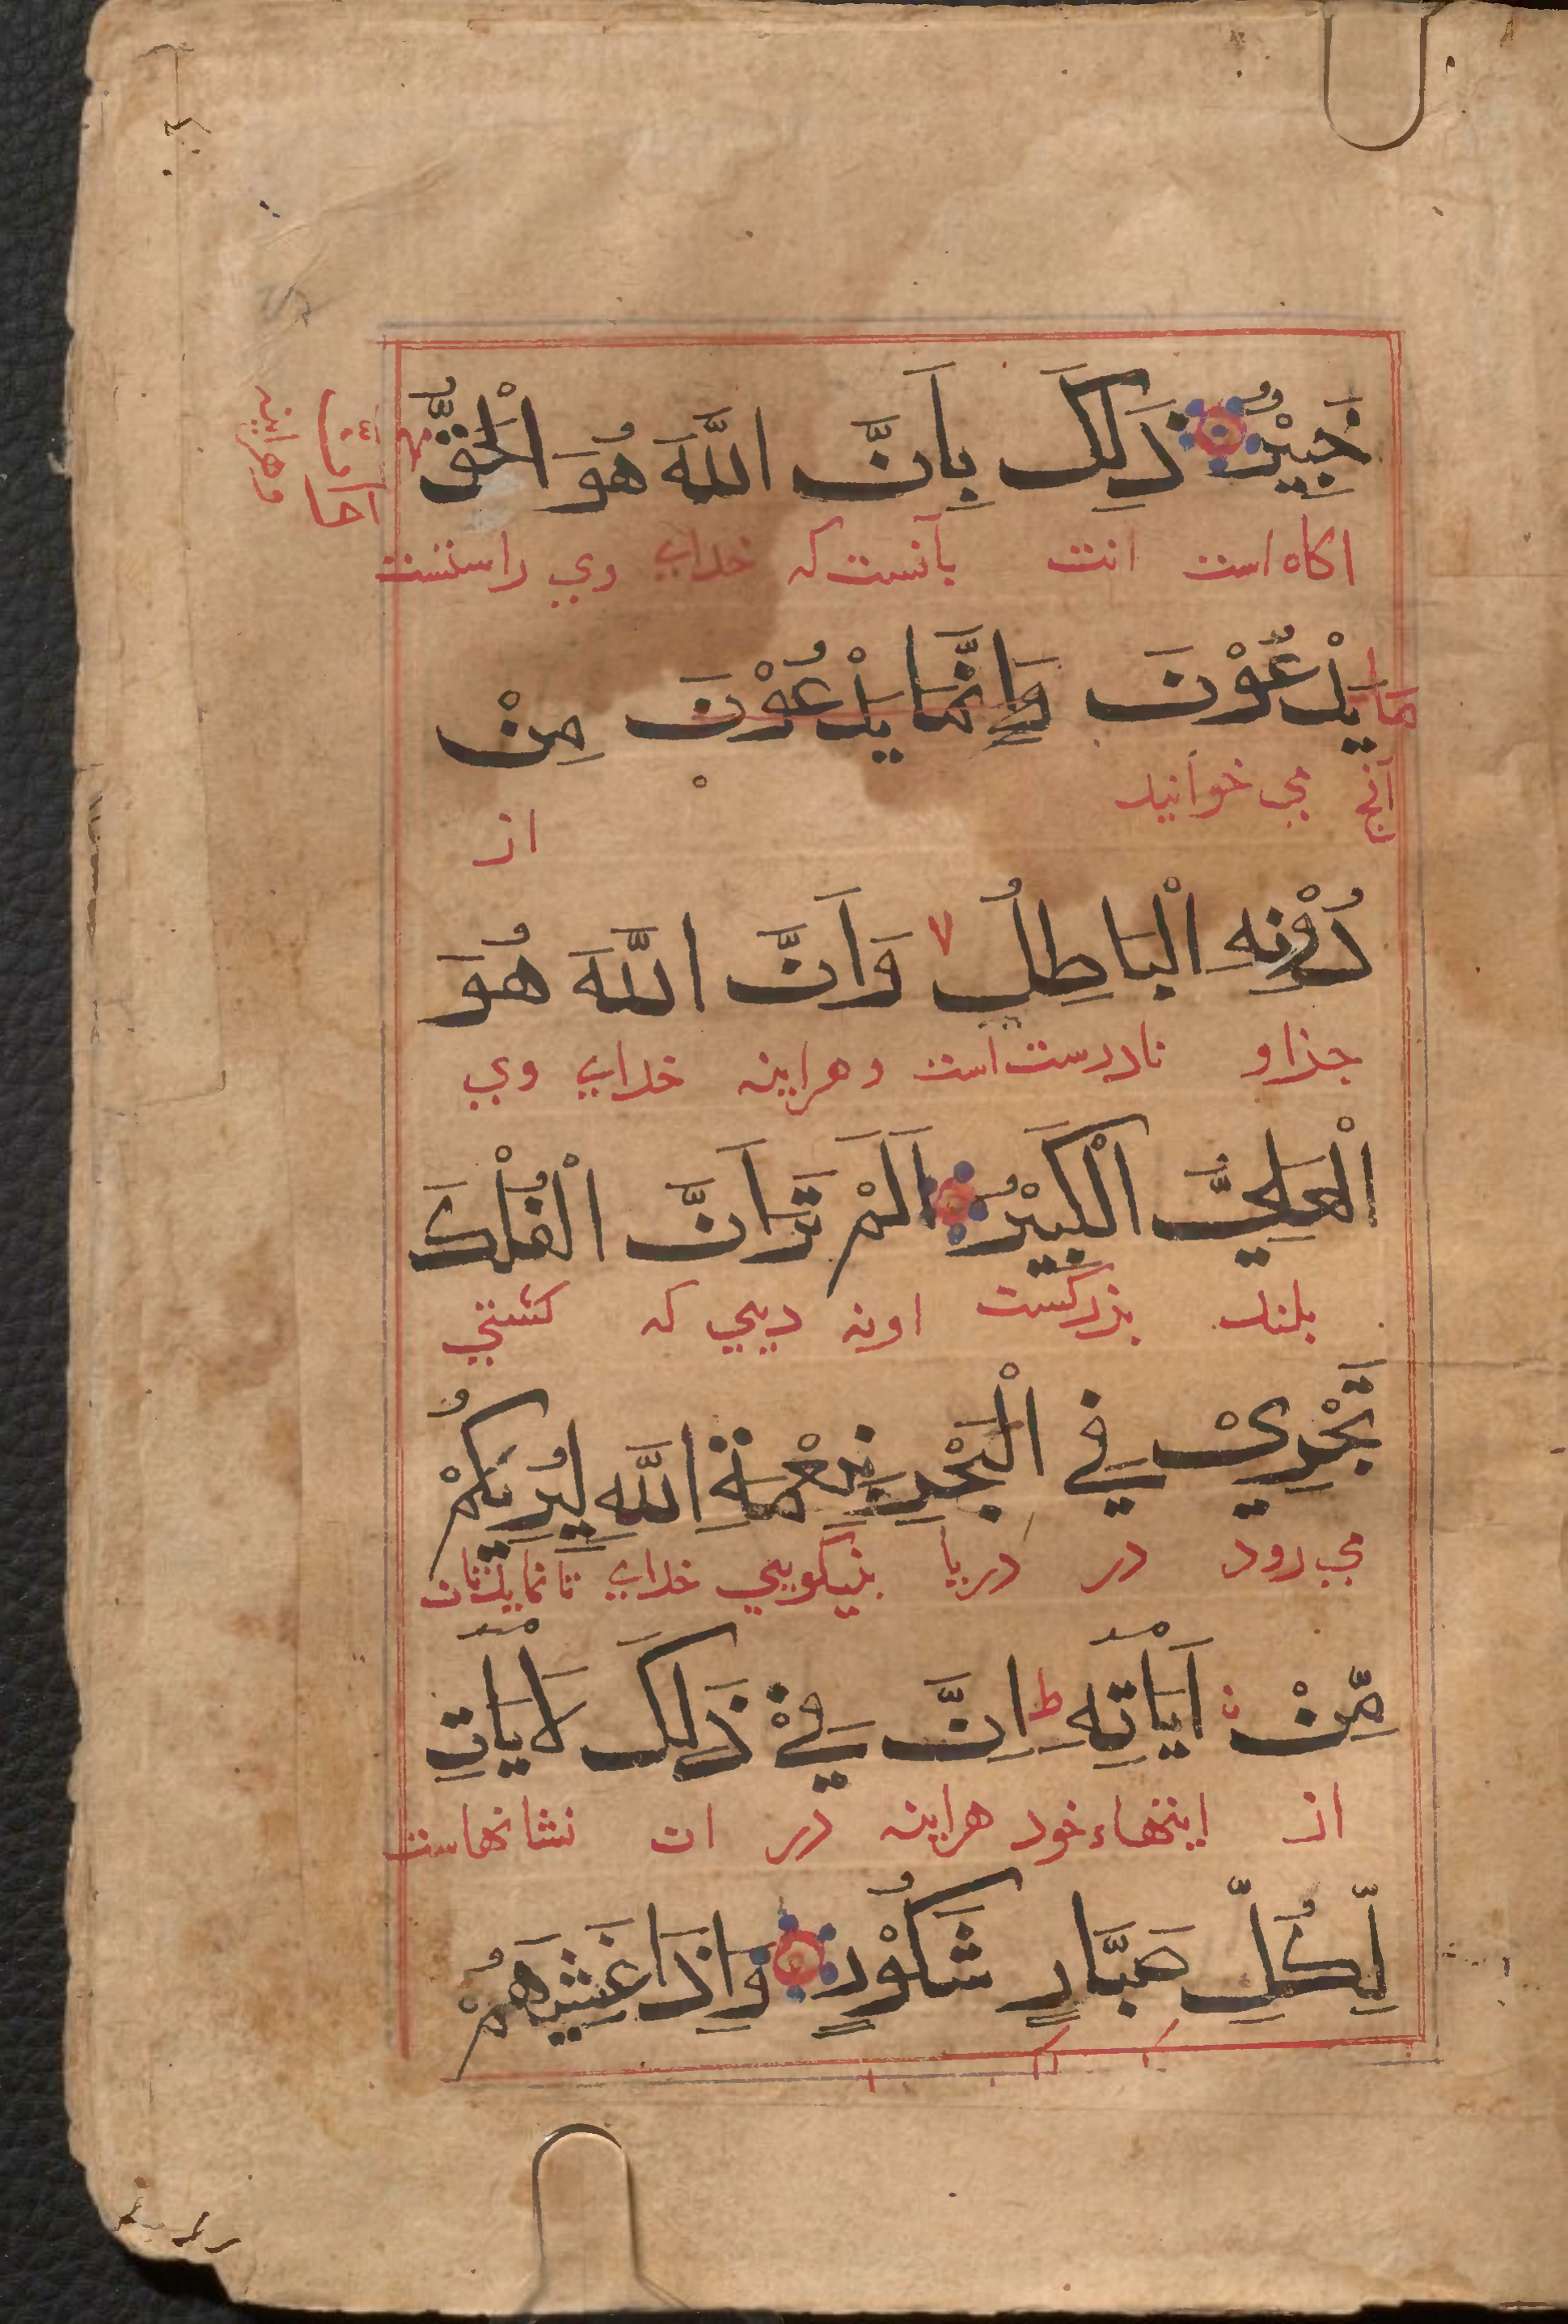 خَبِيْرٌ ذَلِكَ بِاَنَّ اللَّهَ هُوَ الْحَقُّ
اكاه است انت بآنست كه خداي وي راستست
وهراينه
يَدْعُوْنَ وَاِنَّمَا يَدْعُوْنَ مِنْ
آنچ مي خوانيد از
دُوْنِهِ الْبَاطِلُ لا وَاَنَّ اللَّهَ هُوَ
جذاو نادرست است وهراينه خداي وي
الْعَلِيُّ الْكَبِيْرُ اَلَمْ تَرَ اَنَّ الْفُلْكَ
بلند بزركست اونه ديي كه كشتي
تَجْرِيْ فِي الْبَحْرِ بِنِعْمَةِ اللَّهِ لِيُرِيَكُمْ
مي رود در دريا بنيكويي خداي تا نمايدتان
مِّنْ اَيَاتِهِ ط اِنَّ فِيْ ذَلِكَ لَاَيَاتٍ
از اينهاء خود هراينه در ان نشانهاست
لِّكُلِّ صَبَّارٍ شَكُوْرٍ وَاِذَا غَشِيَهُمْ